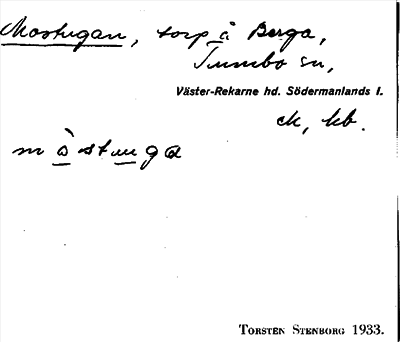 Mostugan, torp å Berga,
Tumbo sn,
Väster-Rekarne hd. Södermanlands l.
ek, kb.
mòstuga
TORSTEN STENBORG 1933.